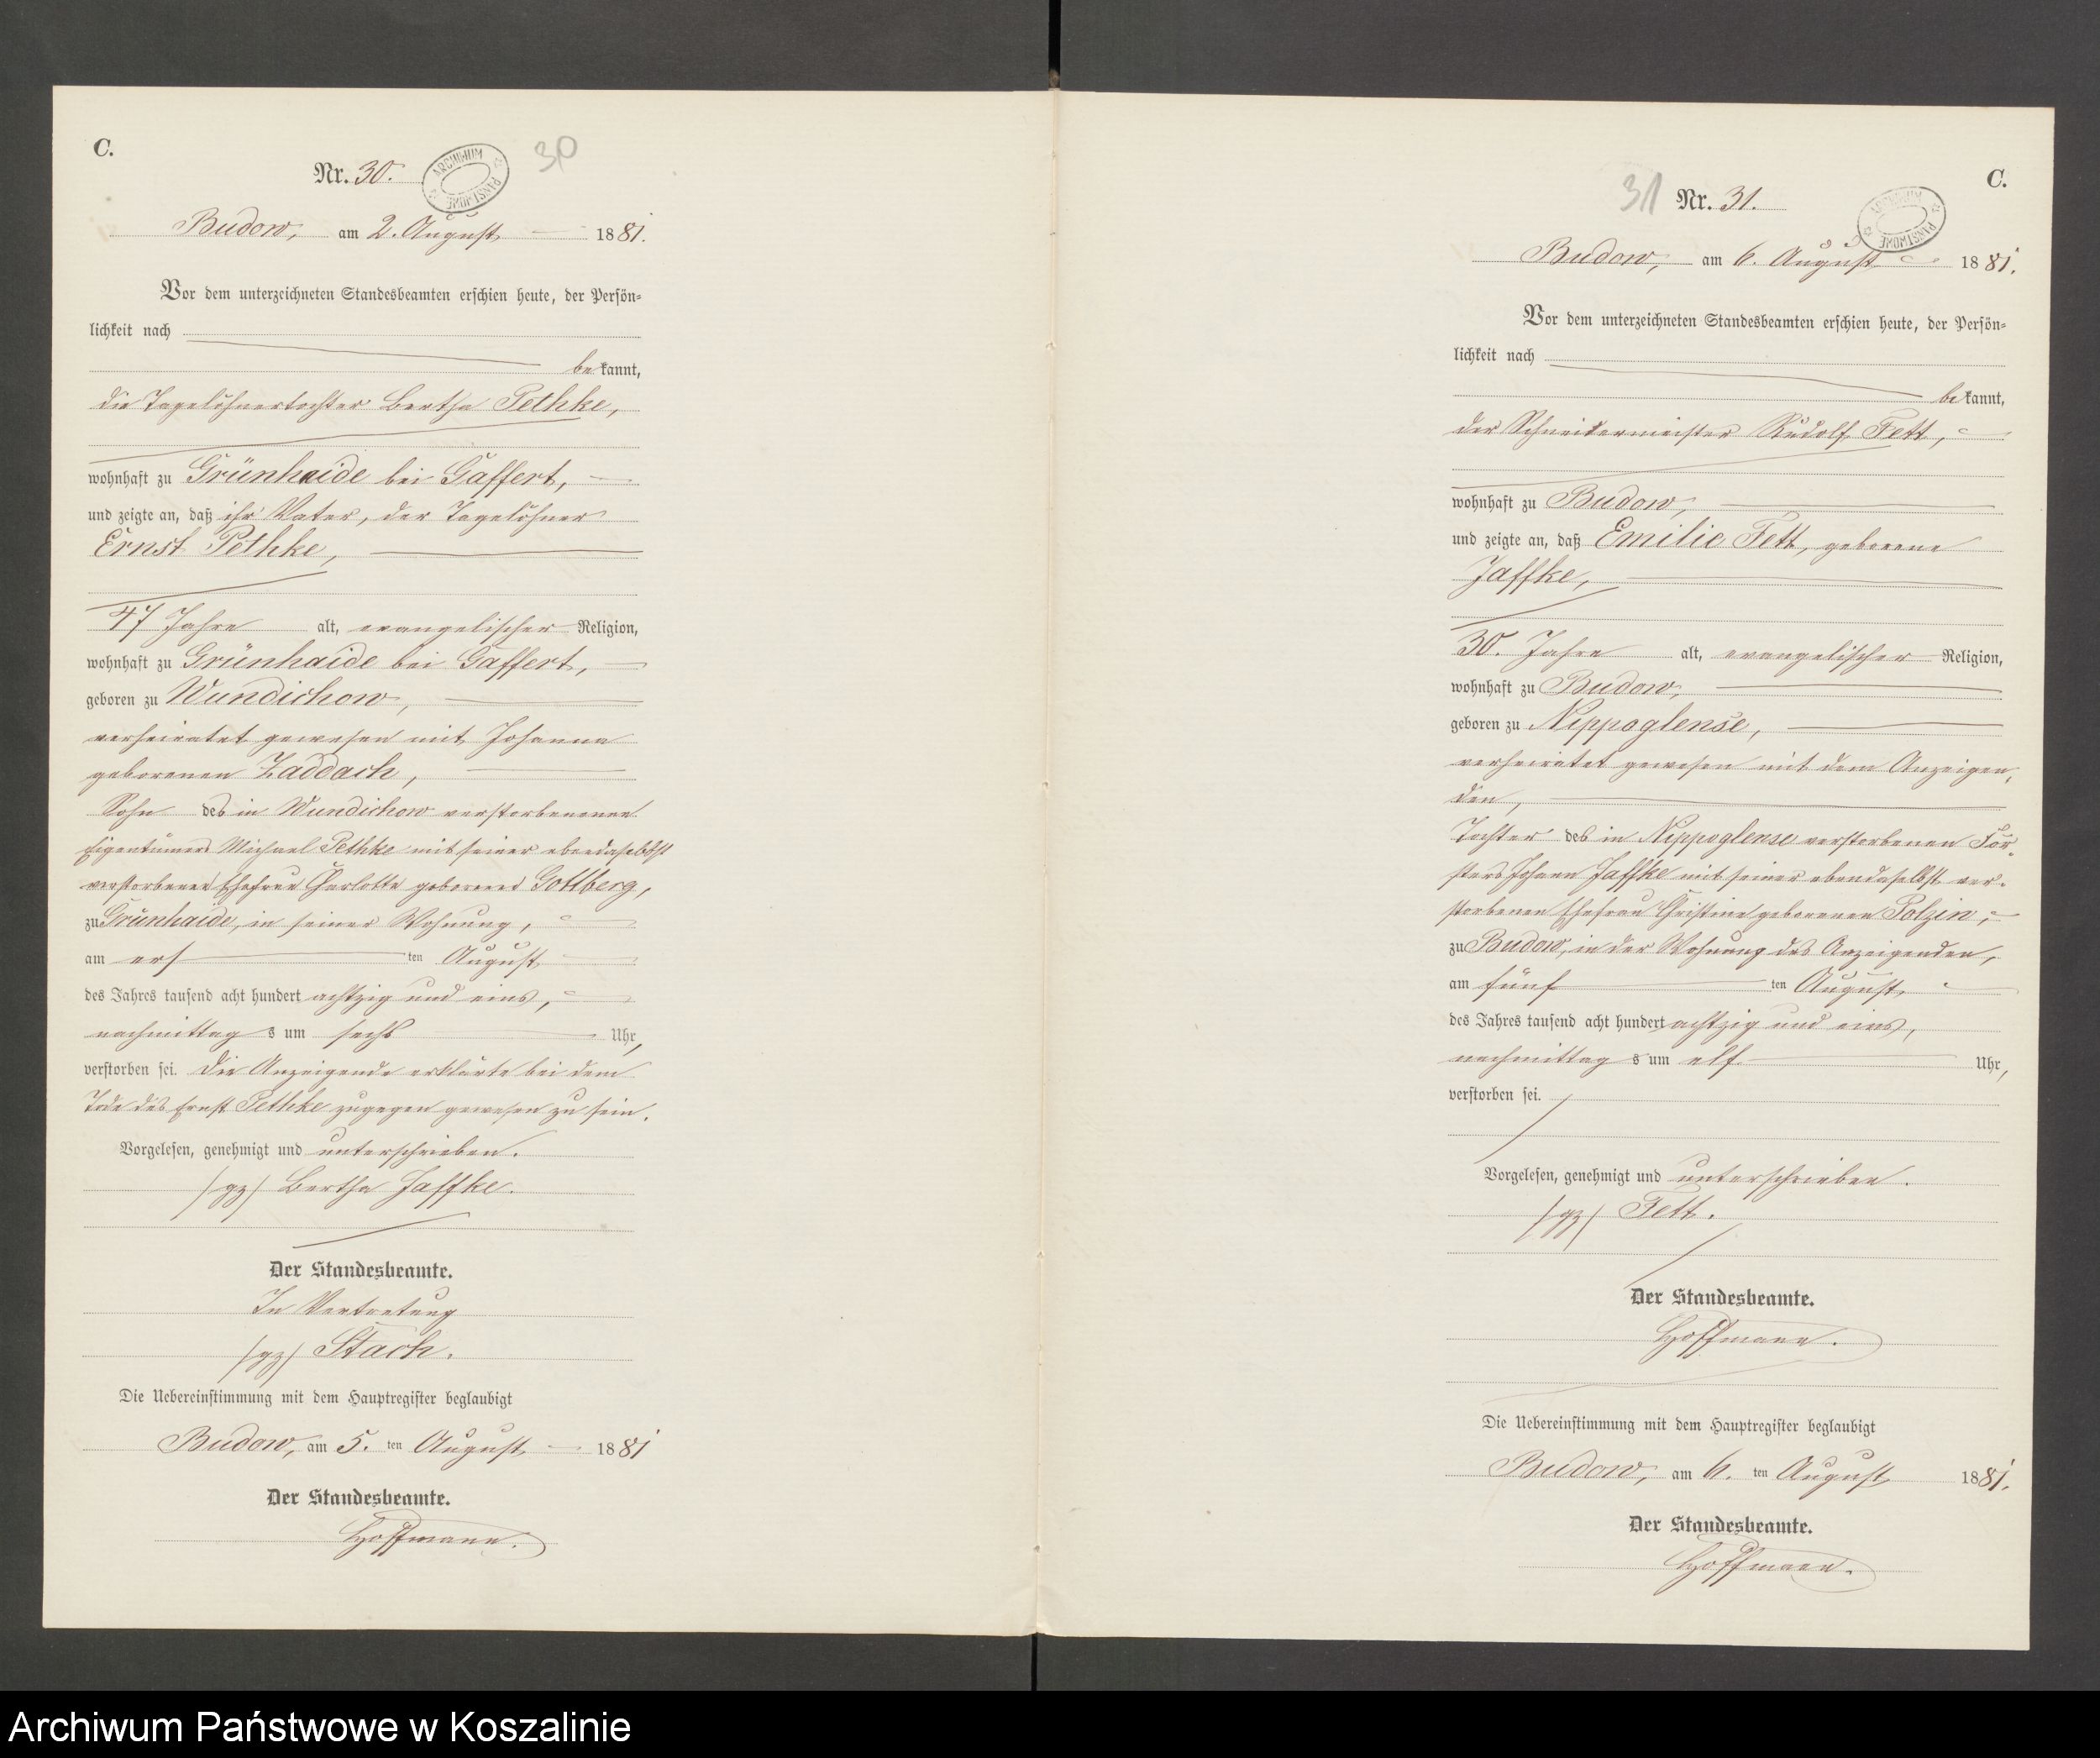 C.
Nr. 30.
ARCHIWUM PAŃSTWOWE
30
Budow, am 2. August 1881.
Vor dem unterzeichneten Standesbeamten erschien heute, der Persön-
lichkeit nach
bekannt,
die Tagelöhnertochter Bertha Pethke,
wohnhaft zu Grünhaide bei Gaffert,
und zeigte an, daß ihr Vater, der Tagelöhner
Ernst Pethke,
47 Jahre alt, evangelischer Religion,
wohnhaft zu Grünhaide bei Gaffert,
geboren zu Wundichow,
verheiratet gewesen mit Johanna
geborenen Zaddach,
Sohn des in Wundichow verstorbenenen
Eigentümers Michael Pethke mit seiner ebendaselbst
verstorbenen Ehefrau Charlotte geborenen Gottberg,
zu Grünhaide, in seiner Wohnung,
am ersten August
des Jahres tausend acht hundert achtzig und eins,
nachmittags um sechs Uhr,
verstorben sei. Die Anzeigende erklärte bei dem
Tode des Ernst Pethke zugegen gewesen zu sein.
Vorgelesen, genehmigt und unterschrieben.
/gz/ Bertha Jaffke.
Der Standesbeamte.
In Vertretung
/gz/ Stach.
Die Uebereinstimmung mit dem Hauptregister beglaubigt
Budow, am 5. ten August 1881
Der Standesbeamte.
Hoffmann.
C.
31
Nr. 31.
ARCHIWUM PAŃSTWOWE
Budow, am 6. August 1881.
Vor dem unterzeichneten Standesbeamten erschien heute, der Persön-
lichkeit nach
bekannt,
der Schneidermeister Rudolf Fett,
wohnhaft zu Budow,
und zeigte an, daß Emilie Fett, geborene
Jaffke,
30. Jahre alt, evangelischer Religion,
wohnhaft zu Budow,
geboren zu Nippoglense,
verheiratet gewesen mit dem Anzeigen-
den,
Tochter des in Nippoglense verstorbenen För-
sters Johann Jaffke mit seiner ebendaselbst ver-
storbenen Ehefrau Christine geborenen Polzin,
zu Budow, in der Wohnung des Anzeigenden,
am fünften August
des Jahres tausend acht hundert achtzig und eins,
nachmittags um elf Uhr,
verstorben sei.
Vorgelesen, genehmigt und unterschrieben.
/gz/ Fett.
Der Standesbeamte.
Hoffmann.
Die Uebereinstimmung mit dem Hauptregister beglaubigt
Budow, am 6. ten August 1881.
Der Standesbeamte.
Hoffmann.
Archiwum Państwowe w Koszalinie